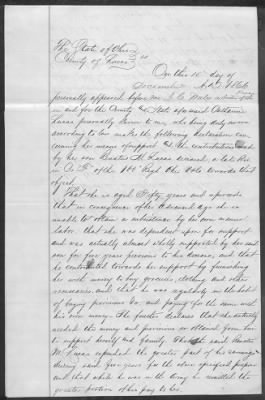 The State of Ohio
County of Lucas } ss
On this 15th day of
December A.D. 1866
personally appeared before me a Notary
in and for the County & State aforesaid Catharine
Lucas personally known to me, who being duly sworn
according to law makes the following declaration con-
cerning her means of support & the contribution
by her son Lucas deceased, a late Private
in Co. of the Regt Ohio Vols towards that
object.
That she is aged Fifty years and upwards
that in consequence of her Advanced age she is
unable to obtain a subsistence by her own manual
labor. that she was dependent upon for support
and was actually almost wholly supported by her said
son for five years previous to his decease, and that
he contributed towards her support by furnishing
her with money to buy groceries, clothing and other
necessaries and that he was regularly in the habit
of buying provisions &c, and paying for the same with
his own money. She further declares that she actually
needed the money and provisions so obtained from him
to support herself and family. That said
M. Lucas expended the greater part of his earnings
during said five years for the above specified purpose
and that while he was in the Army he remitted the
greater portion of his pay to her.